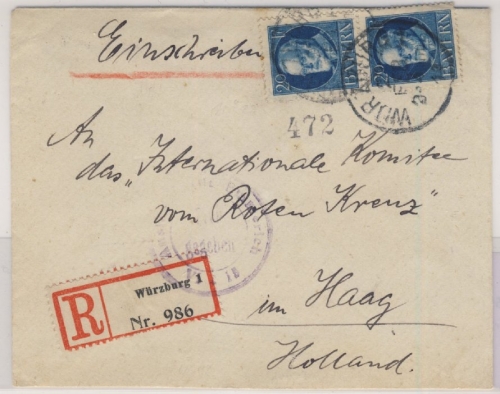 Einschreiben
20 BAYERN
20 BAYERN
WÜRZBURG
472
An
das „Internationale Komitee
vom Roten Kreuz"
R Würzburg 1
Nr. 986
im Haag
Holland.